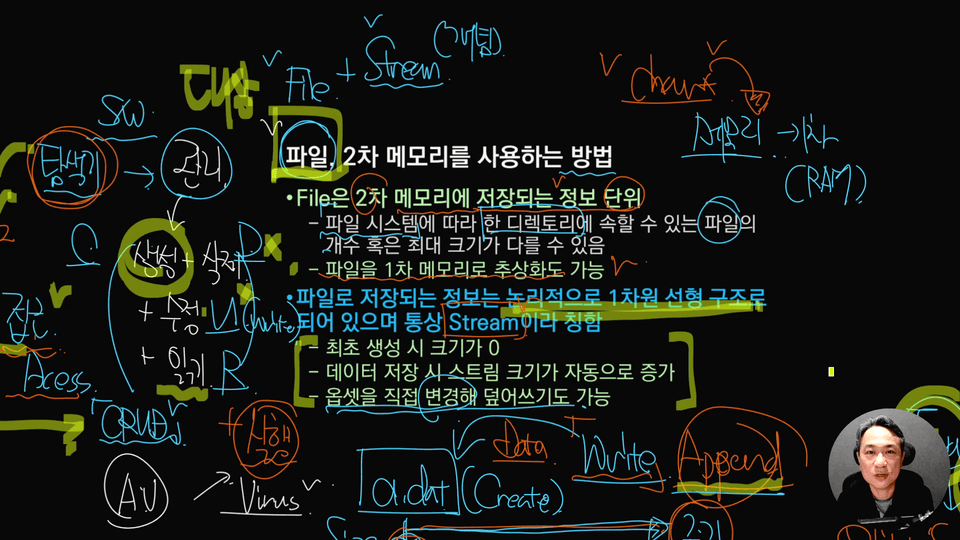 대상
File + Stream (개념)
SW
탐색기 → 관리
메모리 → 1차
(RAM)
파일, 2차 메모리를 사용하는 방법
•File은 2차 메모리에 저장되는 정보 단위
- 파일 시스템에 따라 한 디렉토리에 속할 수 있는 파일의
개수 혹은 최대 크기가 다를 수 있음
- 파일을 1차 메모리로 추상화도 가능
•파일로 저장되는 정보는 논리적으로 1차원 선형 구조로
되어 있으며 통상 Stream이라 칭함
- 최초 생성 시 크기가 0
- 데이터 저장 시 스트림 크기가 자동으로 증가
- 옵셋을 직접 변경해 덮어쓰기도 가능
C
생성 + 삭제 D
+ 수정 U (Write)
+ 읽기 R
접근
Acess
"CRUD"
+ 실행
AV → Virus
a.dat (Create)
data
Write
Append
Size
크기